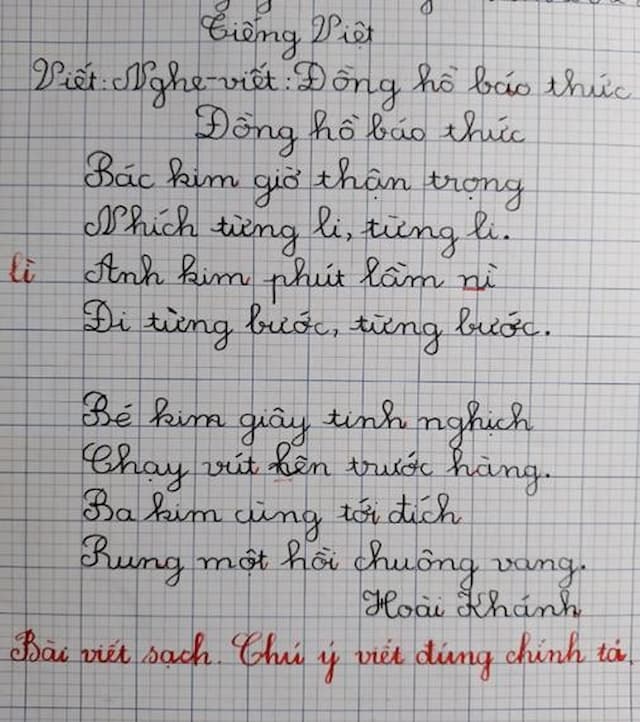 Tiếng Việt
Viết: Nghe-viết: Đồng hồ báo thức
Đồng hồ báo thức
Bác kim giờ thận trọng
Nhích từng li, từng li.
lì Anh kim phút lầm nì
Đi từng bước, từng bước.
Bé kim giây tinh nghịch
Chạy vút lên trước hàng.
Ba kim cùng tới đích
Rung một hồi chuông vang.
Hoài Khánh
Bài viết sạch. Chú ý viết đúng chính tả.